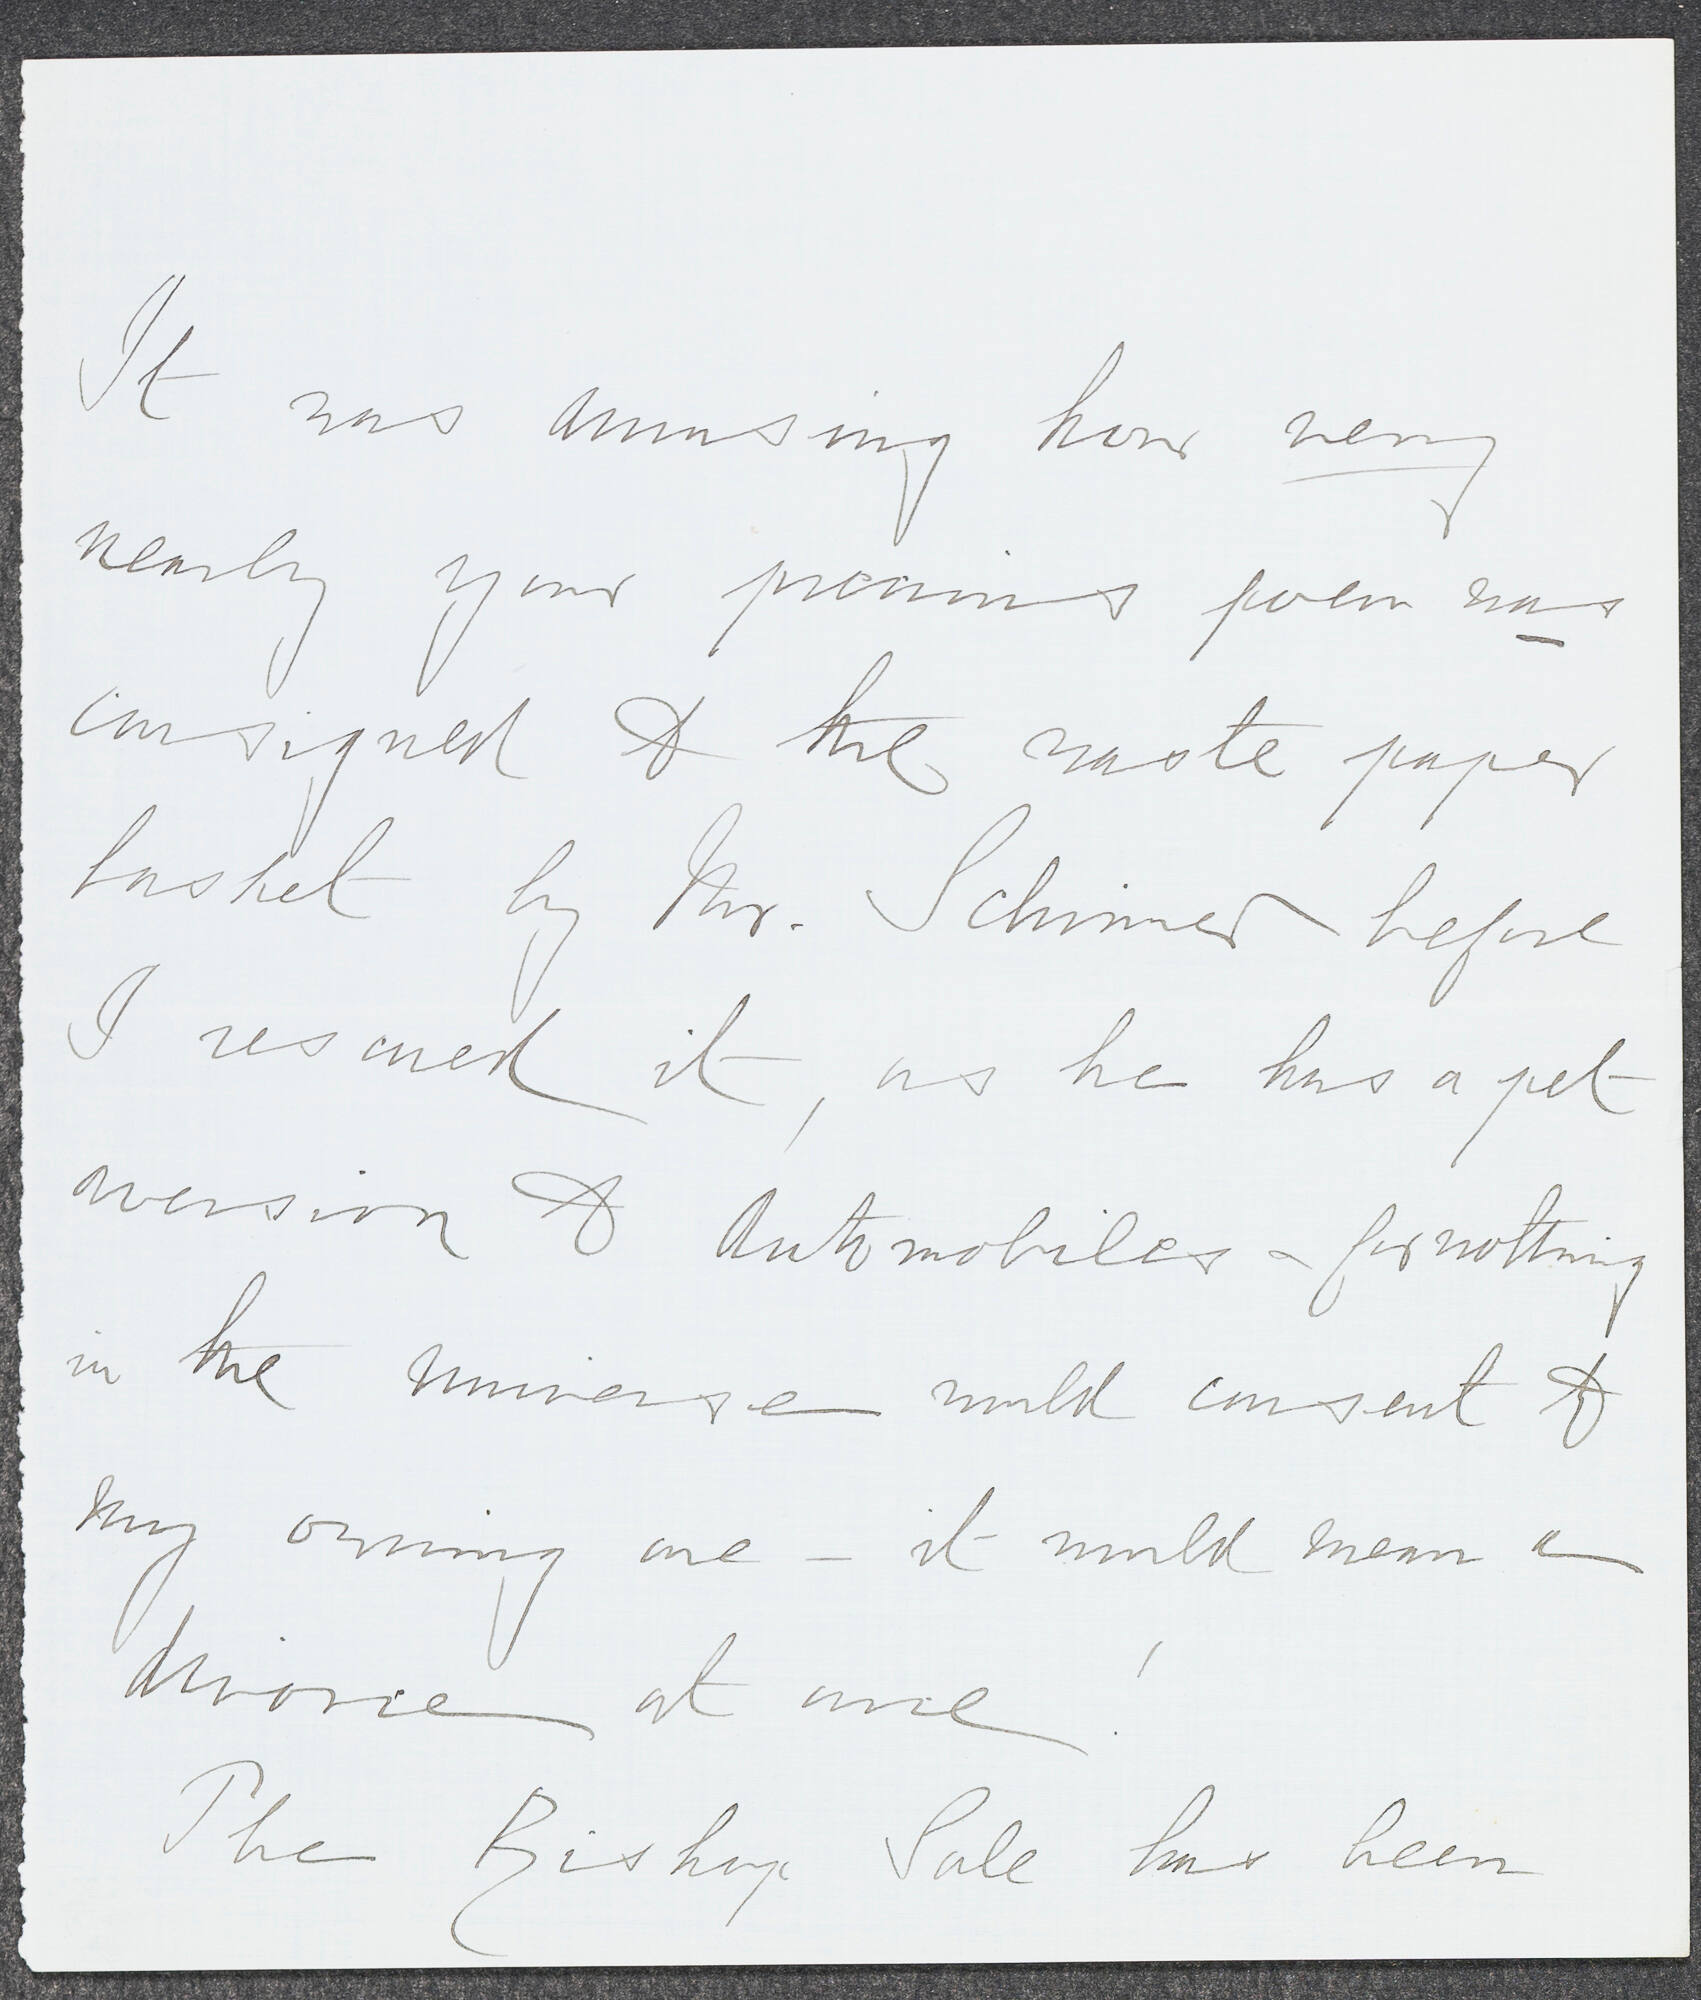 It was amusing how very
nearly your precious poem was
consigned to the waste paper
basket by Mr. Schirmer before
I rescued it, as he has a pet
aversion to Automobiles - for nothing
in the universe would consent to
my owning one - it would mean a
divorce at once!
The Bishop Sale has been